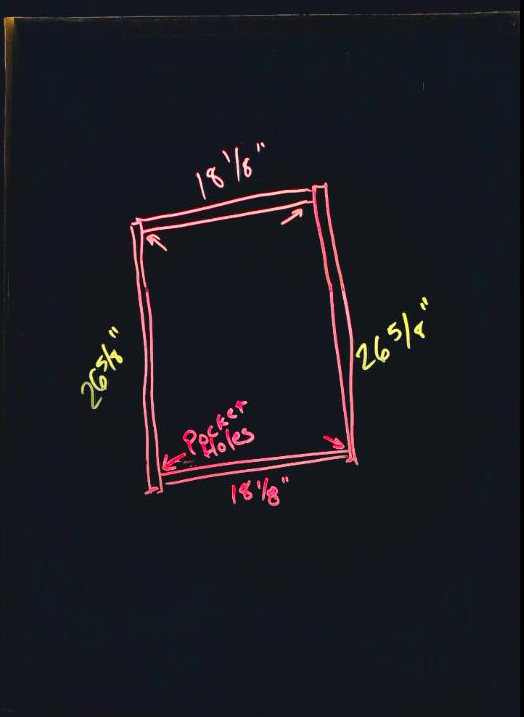 18 1/8"
26 5/8"
26 5/8"
Pocket
Holes
18 1/8"